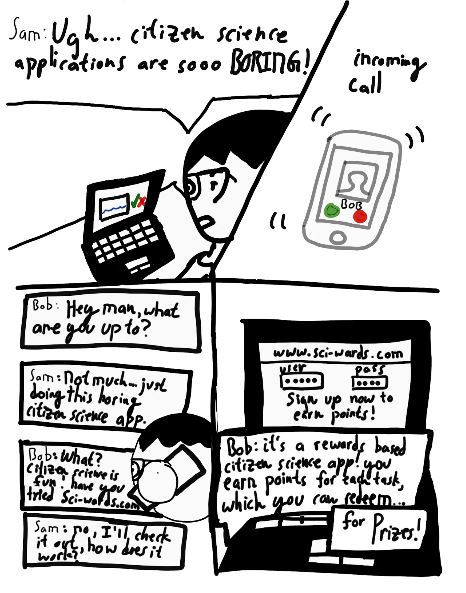 Sam: Ugh... citizen science
applications are sooo BORING!
incoming
call
BOB
Bob: Hey man, what
are you up to?
Sam: Not much... just
doing this boring
citizen science app.
Bob: What?
citizen science is
fun! have you
tried Sci-wards.com
Sam: no, I'll check
it out, how does it
work?
www.sci-wards.com
user pass
Sign up now to
earn points!
Bob: it's a rewards based
citizen science app! you
earn points for each task,
which you can redeem...
for Prizes!